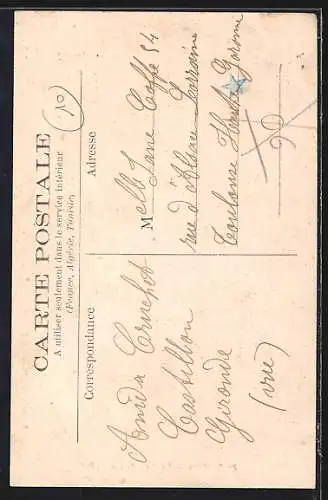 CARTE POSTALE
A utiliser seulement dans le service intérieur
(France, Algérie, Tunisie)
10
Correspondance
Castillon
Gironde
Adresse
Melle Jane 54
rue d'Alsace Lorraine
Toulouse Haute Garonne